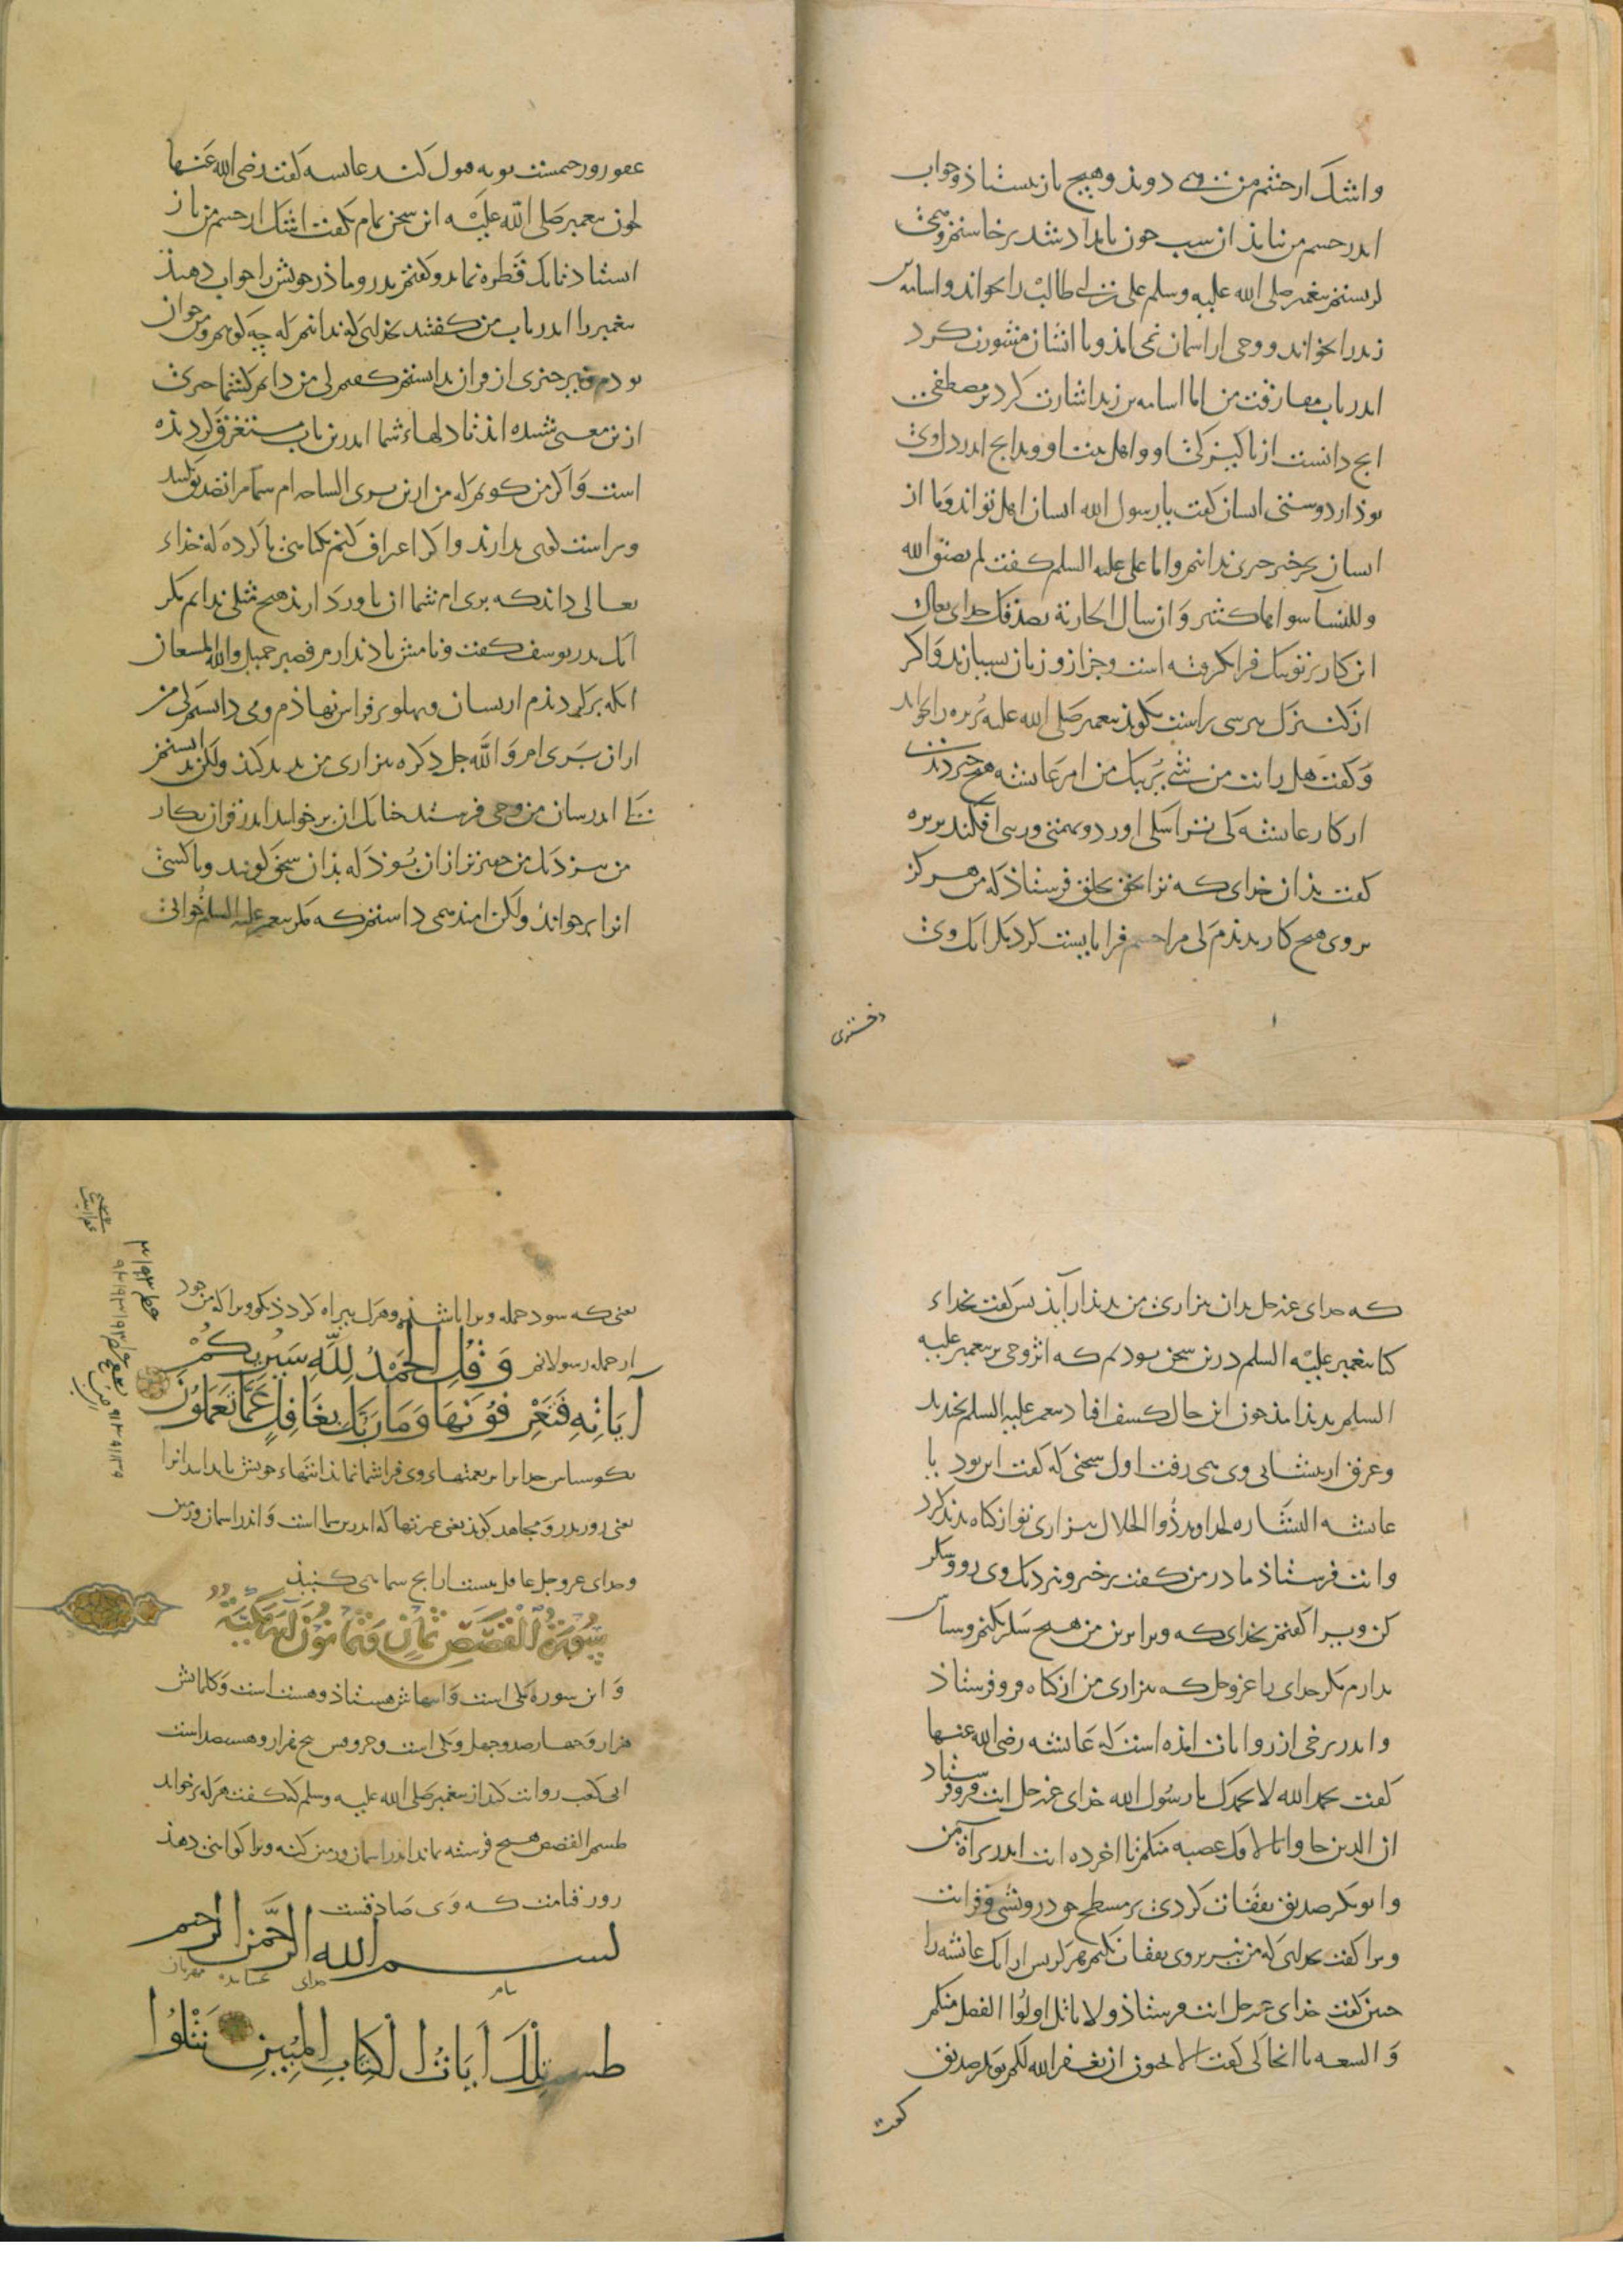 واشک از چشم من همی دویذ وهیچ باز نیستاذ وخواب
اندر چشم من نیامذ از شب چون بامداد شد برخاستم وهمی
کریستم پیغمبر صلی الله علیه وسلم علی بن ابی طالب را بخواند واسامه بن
زید را بخواند ووحی از اسمان نمی امذ وبا ایشان مشورت کرد
اندر باب مفارقت من اما اسامه بن زید اشارت کرد بر مصطفی
انچ دانست از پاکیزکی او واهل بیت او وبدانچ اندر دل وی
بوذ از دوستی ایشان کفت یا رسول الله ایشان اهل تواند وما از
ایشان جز خیر چیزی ندانیم واما علی علیه السلم کفت لم یضیق الله
وللنسآ سواها کثیر وان سال الجاریة تصدقک خدای تعالی
این کار بر تو تنک فرا نکرفته است وجز از و زنان بسیارند واکر
از کنیزک بپرسی براست بکوید پیغمبر صلی الله علیه بریره را بخواند
وکفت هل رایت من شیء یریبک من امر عایشه هیچ چیز دیدی
از کار عایشه کی ترا بشکی اورد وبتهمتی ورسی افکند بریره
کفت بذان خدای که ترا بحق بخلق فرستاذ که من هرکز
بر وی هیچ کار بدیذم کی مرا چشم فرا بایست کرد مکر انک وی
دختری
عفور ورحیمست توبه قبول کند عایشه کفت رضی الله عنها
چون پیغمبر صلی الله علیه این سخن تمام بکفت اشک از چشم من باز
استاذ تا یک قطره نماند وکفتم پدر وماذر خویش را جواب دهیذ
پیغمبر را اندر باب من کفتند بخدای که ندانیم که چه کوییم ومن جوان
بودم وبیر چیزی از قران ندانستم کفتم کی من دانم کی شما چیزی
ازین معنی شنیده ایذ تا دلهاء شما اندرین باب مستغرق کردیذه
است واکر من کویم که من ازین بری الساحه ام شما مرا تصدیق نکنید
وبراست کوی ندارند واکر اعتراف کنم بکناهی ناکرده که خداء
تعالی داند که بری ام شما از ما ور دارید هیچ مثلی ندانم مکر
انک پدر یوسف کفت ونامش یاد ندارم فصبر جمیل والله المستعان
انکه برکردیذم از یشان وپهلو بر فراش نهاذم ومی دانستم کی من
ازان بری ام والله جل ذکره بیزاری من پدید کند ولکن ندانستم
کی اندر شان من وحی فرستد چنانک ان برخوانند اندر قران بکار
من نیزدیک من حقیرتر ازان بوذ که بذان سخن کویند وبا کسی
انرا برخواند ولکن امید همی داشتم که مکر پیغمبر علیه السلم خوابی
که خدای عزوجل بدان بیزاری من پدیذار آید پس کفت بخداء
کتا پیغمبر علیه السلم درین سخن بودیم که اثر وحی بر پیغمبر علیه
السلم پدید امذ چون این حال کشف افتاد پیغمبر علیه السلم بخندید
وعرق از پیشانی وی همی رفت اول سخنی که کفت این بود یا
عایشه البشاره خداوند ذوالجلال بیزاری تو از کناه پدید کرد
وایت فرستاذ مادر من کفت برخیز ونزدیک وی رو وشکر
کن ویرا کفتم بخدای که ویرا برین من هیچ شکر نکنم وسپاس
ندارم مکر خدای را عزوجل که بیزاری من از کناه فرو فرستاذ
واندر برخی از روایات امذه است که عایشه رضی الله عنها
کفت بحمد الله لا بحمدک یا رسول الله خدای عزوجل ایت فرو فرستاد
ان الذین جاوا بالافک عصبه منکم تا اخر ده ایت اندر برآة من
وابوبکر صدیق نفقات کردی بر مسطح حق درویشی وقرابت
ویرا کفت بخدای که من نیز بر وی نفقات نکنم هرکز پس ازانک عایشه را
چنین کفت خدای عزوجل ایت فرستاذ ولا یاتل اولوا الفضل منکم
والسعه تا انجا کی کفت الا تحبون ان یغفر الله لکم بوبکر صدیق
کفت
یعنی که سود جمله ویرا باشد وهرک بیراه کردد بکو ویرا که من خود
از جمله رسولانم وَقُلِ الْحَمْدُ لِلَّهِ سَيُرِيكُمْ
آيَاتِهِ فَتَعْرِفُونَهَا وَمَا رَبُّكَ بِغَافِلٍ عَمَّا تَعْمَلُونَ
بکو سپاس خدایرا بر نعمتهاء وی فرا شما نماید ایتهاء خویش بدانید انرا
یعنی روز بدر ومجاهد کوید یعنی عبرتها که اندرین سما است واندر اسمان وزمین
وخدای عزوجل غافل نیست ازانچ شما همی کنیذ
سورة القصص ثمان وثمانون آية مكية
واین سوره مکی است وایتهاش هشتاذ وهشت است وکلماتش
هزار وچهارصد وچهل ویکی است وحروفش پنج هزار وهشتصد است
ابی کعب روایت کند از پیغمبر صلی الله علیه وسلم که کفت هر که برخواند
طسم القصص هیچ فرشته نماند اندر اسمان وزمین که نه ویرا کواهی دهذ
روز قیامت که وی صادقست
بسم الله الرحمن الرحيم
بنام خدای بخشاینده مهربان
طسم تِلْكَ آيَاتُ الْكِتَابِ الْمُبِينِ نَتْلُوا